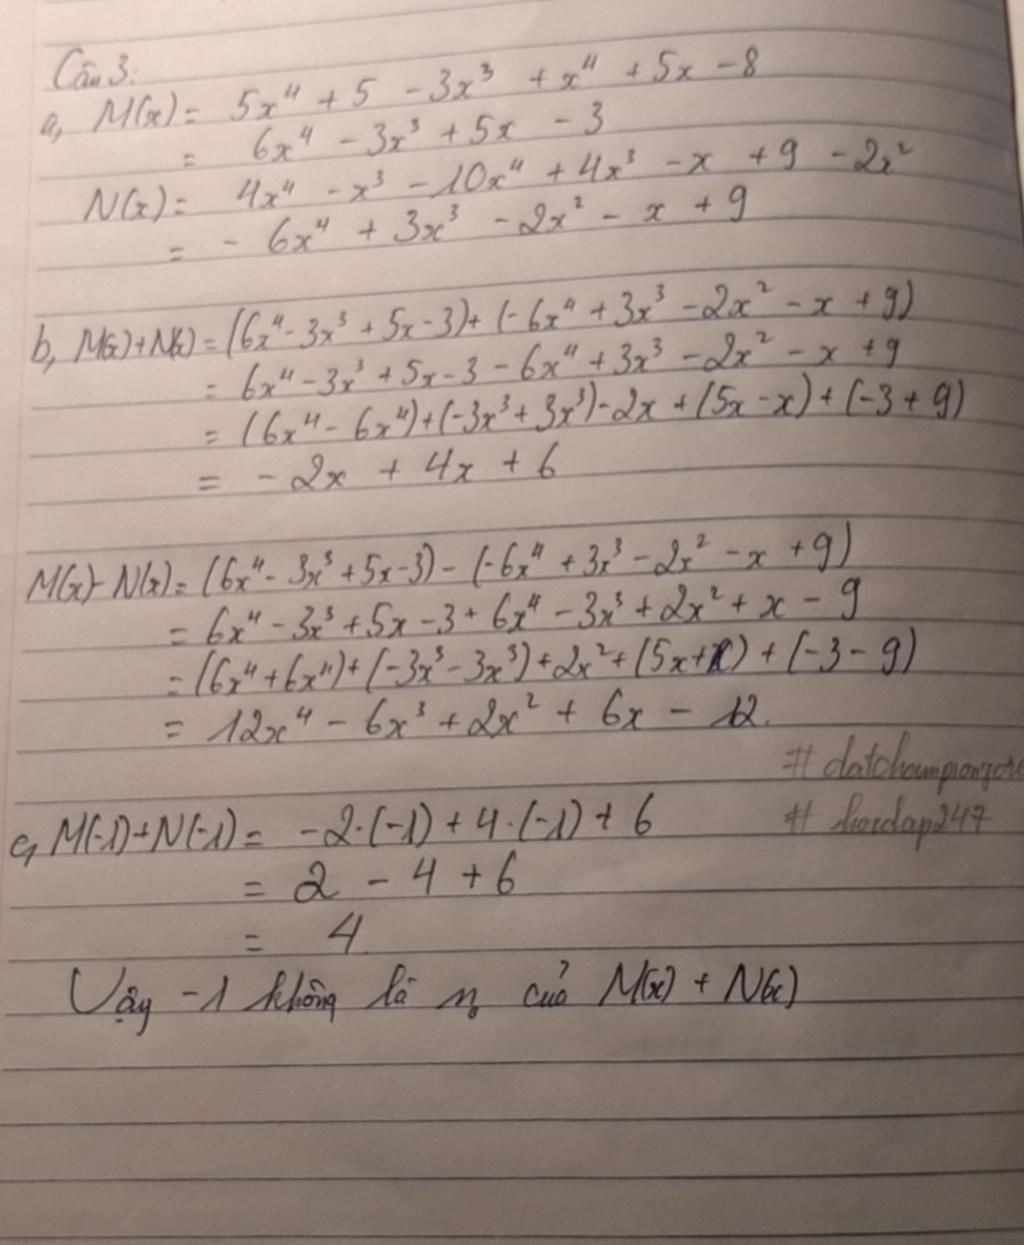 Câu 3:
a, M(x) = 5x⁴ + 5 - 3x³ + x⁴ + 5x - 8
= 6x⁴ - 3x³ + 5x - 3
N(x) = 4x⁴ - x³ - 10x⁴ + 4x³ - x + 9 - 2x²
= - 6x⁴ + 3x³ - 2x² - x + 9
b, M(x)+N(x) = (6x⁴ - 3x³ + 5x - 3) + (-6x⁴ + 3x³ - 2x² - x + 9)
= 6x⁴ - 3x³ + 5x - 3 - 6x⁴ + 3x³ - 2x² - x + 9
= (6x⁴ - 6x⁴) + (-3x³ + 3x³) - 2x + (5x - x) + (-3 + 9)
= - 2x + 4x + 6
M(x) - N(x) = (6x⁴ - 3x³ + 5x - 3) - (-6x⁴ + 3x³ - 2x² - x + 9)
= 6x⁴ - 3x³ + 5x - 3 + 6x⁴ - 3x³ + 2x² + x - 9
= (6x⁴ + 6x⁴) + (-3x³ - 3x³) + 2x² + (5x + x) + (-3 - 9)
= 12x⁴ - 6x³ + 2x² + 6x - 12.
# hoidap247
c, M(-1) + N(-1) = -2·(-1) + 4·(-1) + 6
= 2 - 4 + 6
= 4
Vậy -1 không là n₀ của M(x) + N(x)